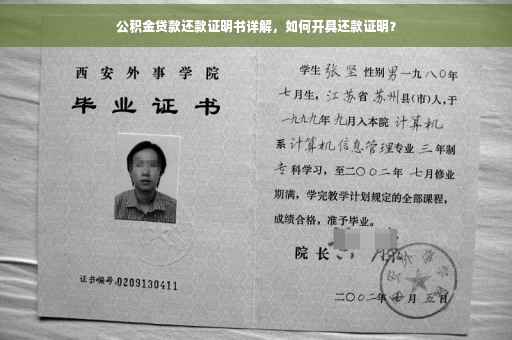 公积金贷款还款证明书详解，如何开具还款证明？
西安外事学院
毕业证书
证书编号:0209130411
学生 张坚 性别男一九八〇年
七月生，江苏省苏州县(市)人,于
一九九九年九月入本院 计算机
系计算机信息管理专业 三 年制
专科学习，至二〇〇二年 七月修业
期满，学完教学计划规定的全部课程，
成绩合格，准予毕业。
院长
二〇〇二年 月五日